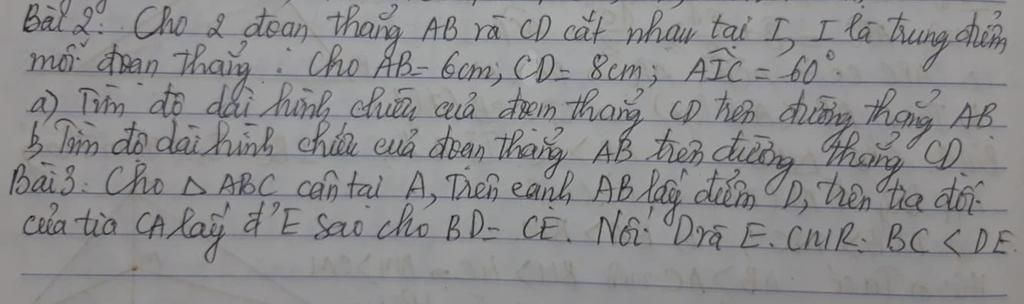 Bài 2: Cho 2 đoạn thẳng AB và CD cắt nhau tại I, I là trung điểm
mỗi đoạn thẳng. Cho AB = 6cm; CD = 8cm; AIC = 60°.
a) Tìm độ dài hình chiếu của đoạn thẳng CD trên đường thẳng AB
b, Tìm độ dài hình chiếu của đoạn thẳng AB trên đường thẳng CD
Bài 3: Cho Δ ABC cân tại A, Trên cạnh AB lấy điểm D, trên tia đối
của tia CA lấy đ' E sao cho BD = CE. Nối D và E. CMR: BC < DE.